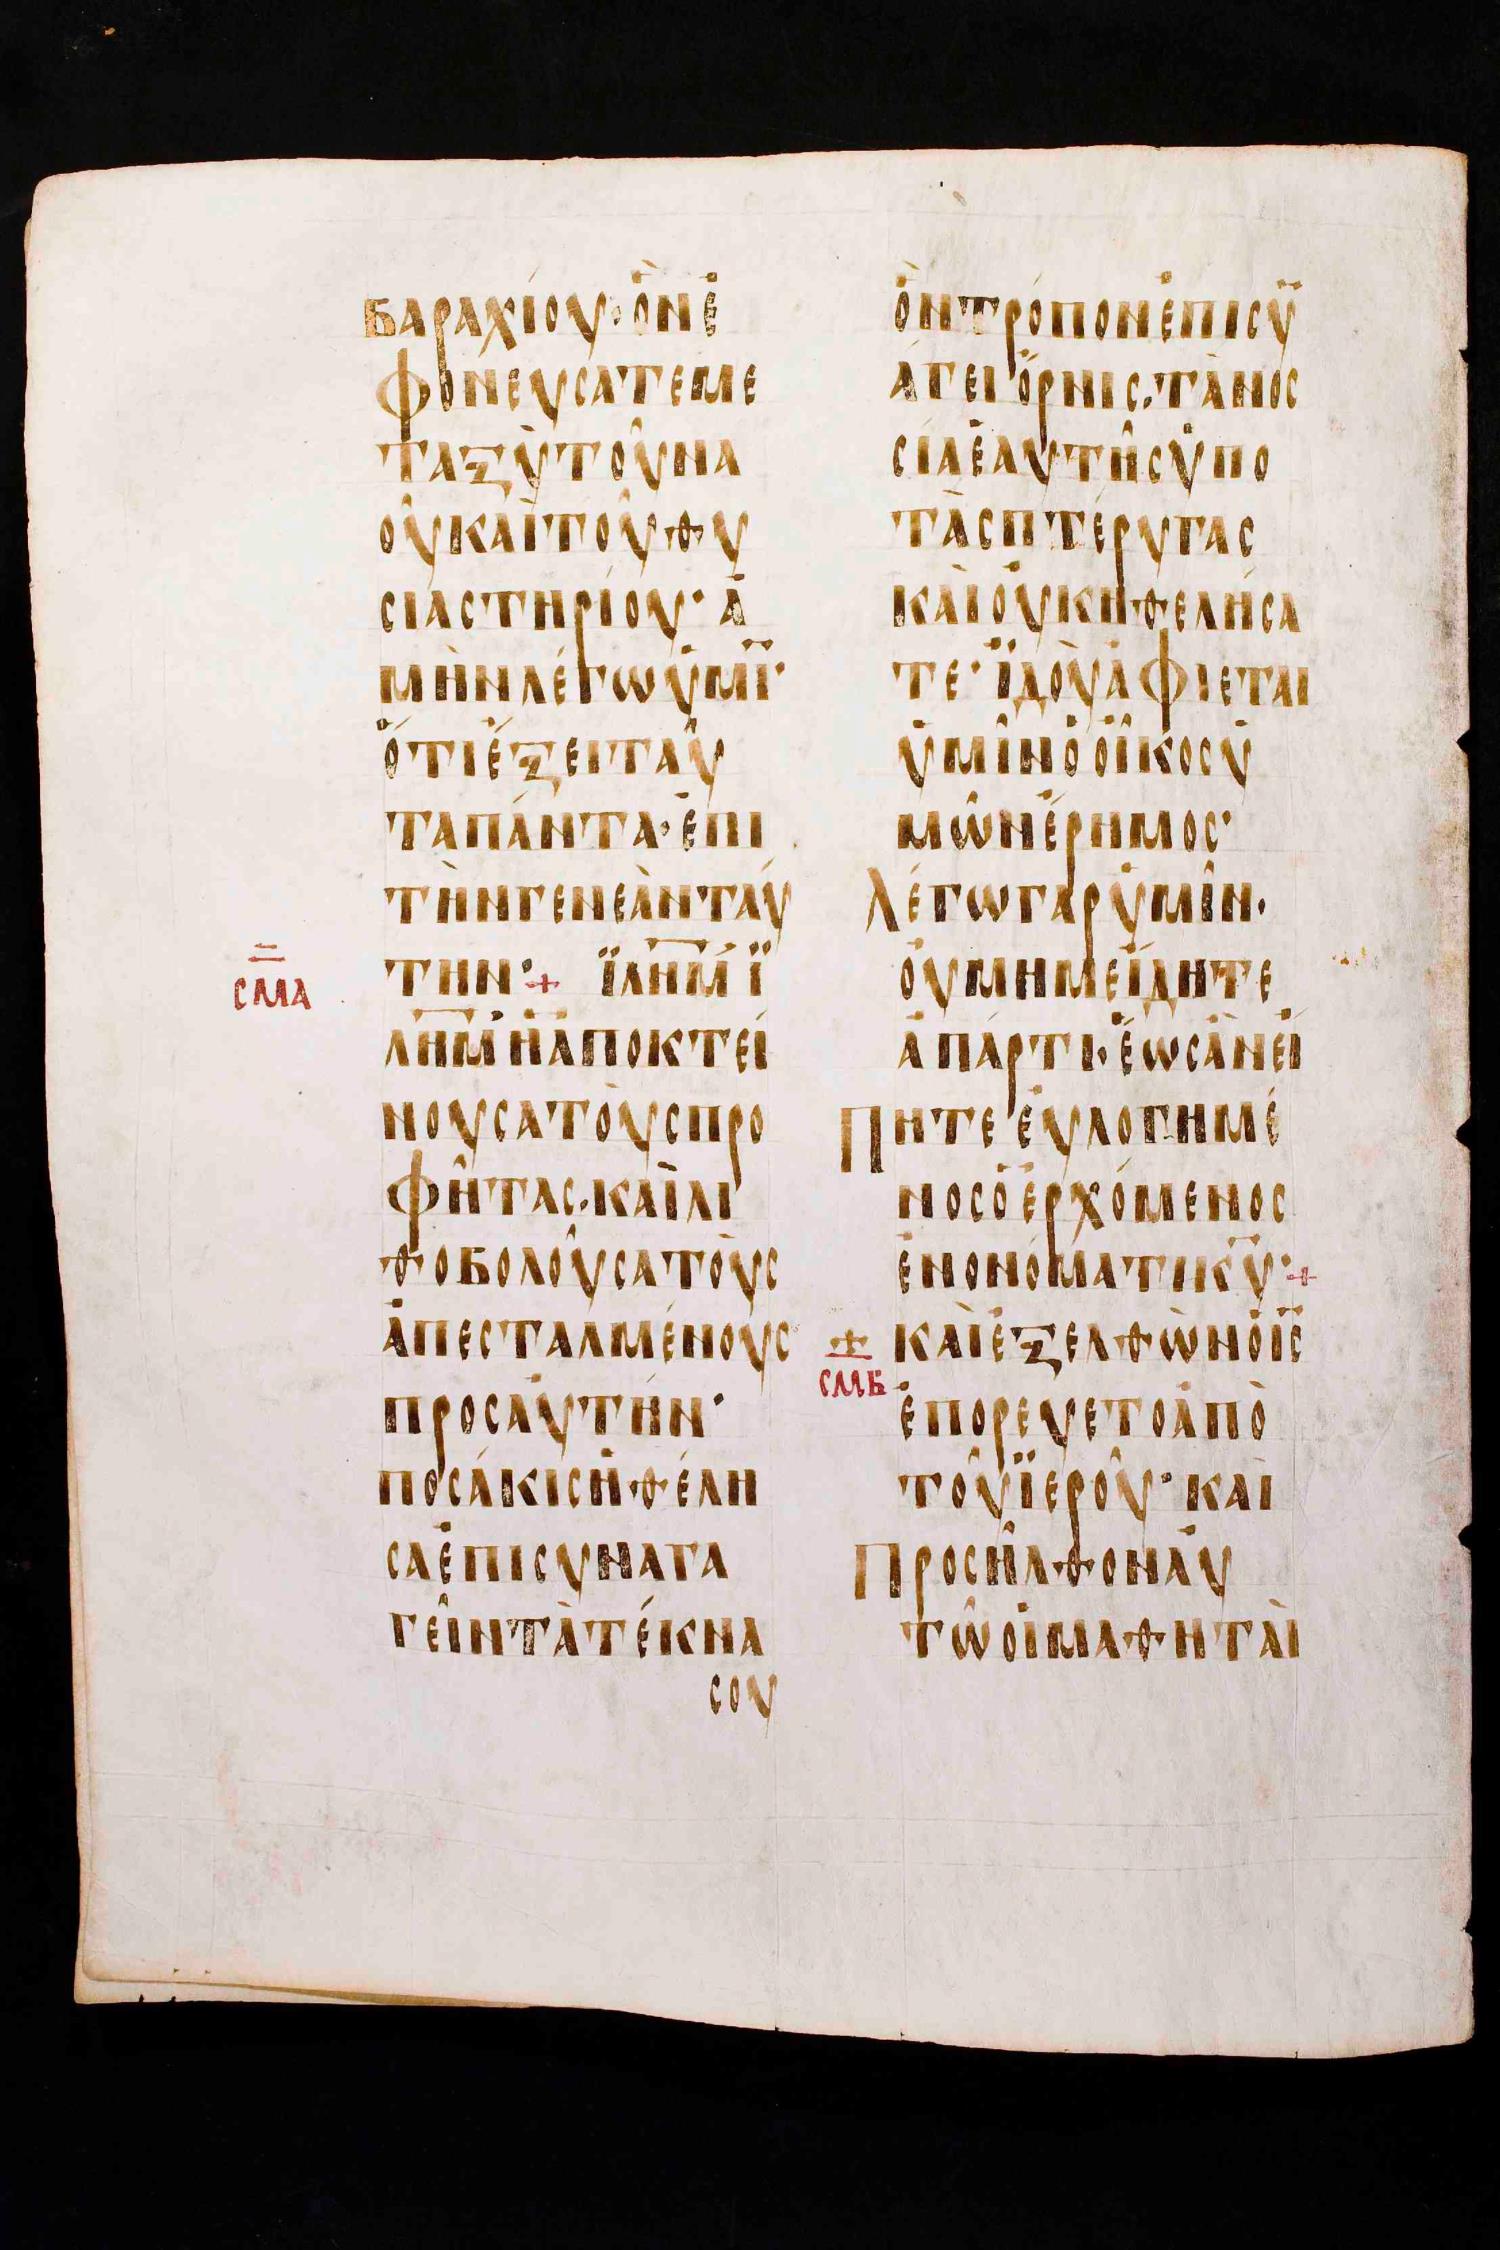 βαραχίου· ὃν ἐ
φονεύσατε με
ταξὺ τοῦ να
οῦ καὶ τοῦ θυ
σιαστηρίου· ἀ
μὴν λέγω ὑμῖ·
ὅτι ἥξει ταῦ
τα πάντα· ἐπὶ
τὴν γενεὰν ταύ
σμα
την· + ϊλημ ϊ
λημ ἡ ἀποκτεί
νουσα τοὺς προ
φήτας· καὶ λι
θοβολοῦσα τοὺς
ἀπεσταλμένους
προς αὐτήν·
ποσάκις ἠθέλη
σα ἐπισυναγα
γεῖν τὰ τέκνα
σου
ὃν τρόπον ἐπισυ
άγει ὄρνις· τὰ νοσ
σία ἑαυτῆς ὑπο
τὰς πτέρυγας
καὶ οὐκ ἠθελήσα
τε· ϊδοὺ ἀφίεται
ὑμῖν ὁ οἶκος ὑ
μῶν ἔρημος·
λέγω γαρ ὑμῖν·
οὐ μη με ἴδητε
ἀπάρτι· ἕως ἂν εἴ
πητε εὐλογημέ
νος ὁ ἐρχόμενος
ἐν ονόματι κυ· +
σμβ
καὶ ἐξελθὼν ὁ ις
ἐπορευετο ἀπὸ
τοῦ ϊεροῦ· καὶ
προσῆλθον αὐ
τῶ οἱ μαθηταὶ